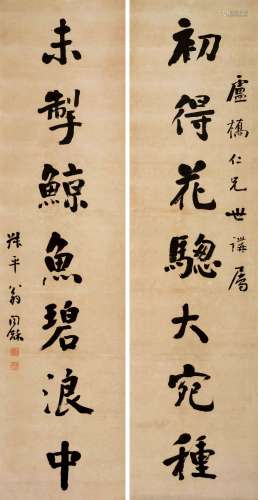 盧橋仁兄世講屬
初得花驄大宛種
未掣鯨魚碧浪中
叔平翁同龢